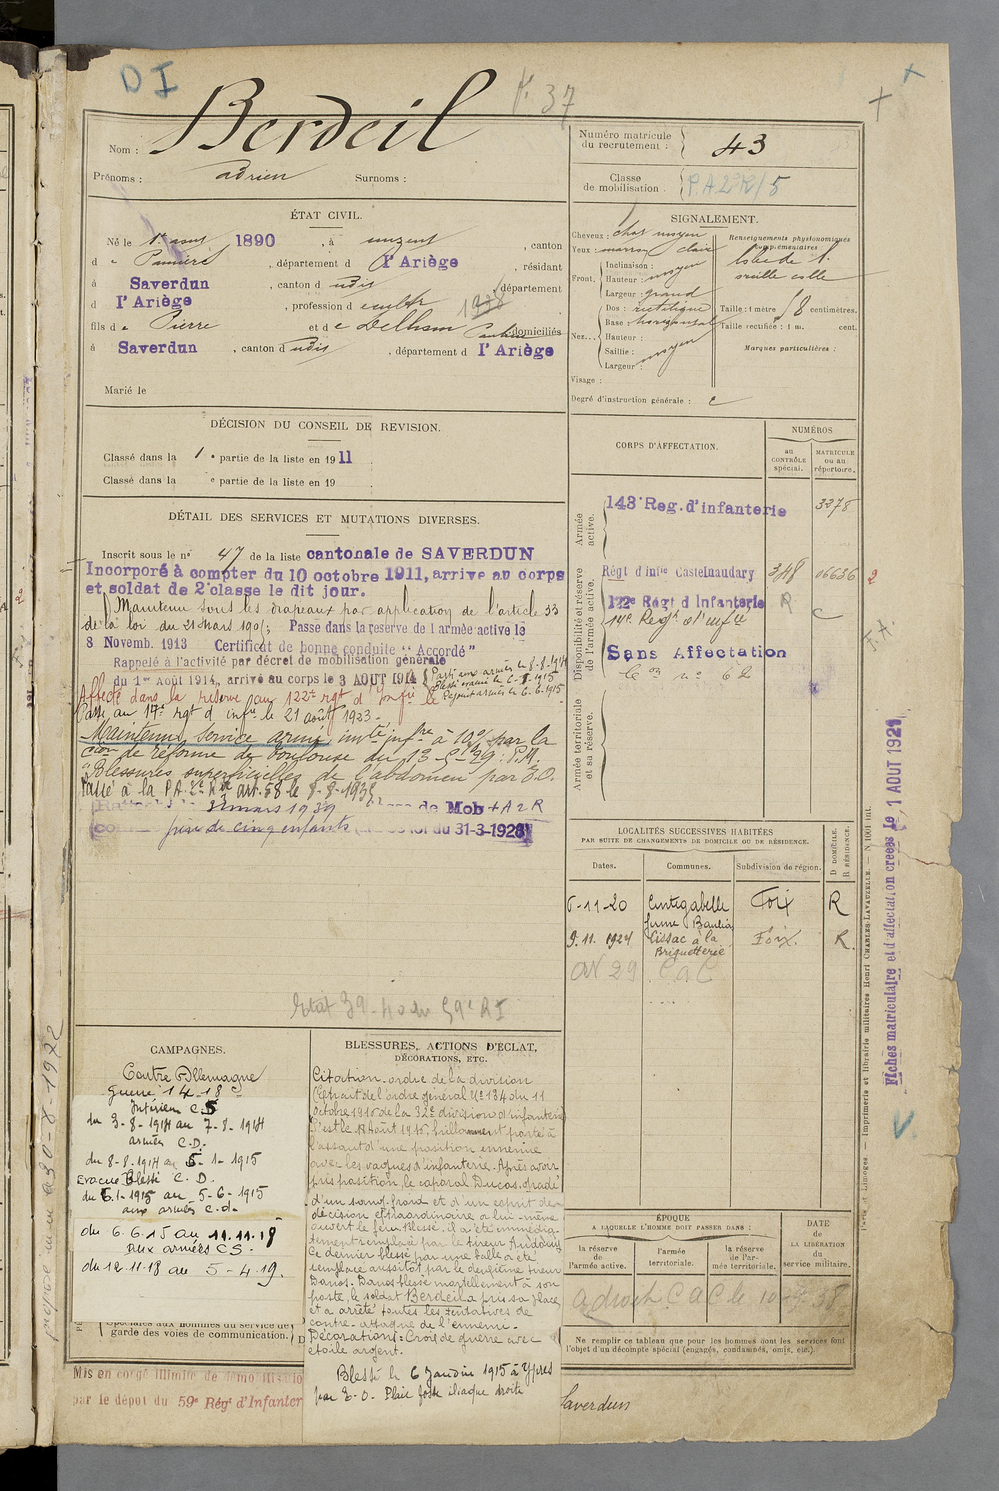 DI
N. 37
Nom : Berdeil
Prénoms : Adrien Surnoms :
ÉTAT CIVIL.
Né le 1er août 1890, à Unzent, canton
de Pamiers, département d l'Ariège, résidant
à Saverdun, canton d udis, département
d l'Ariège, profession de cultr 1938
fils de Pierre et de Delhom Pauline domiciliés
à Saverdun, canton d udis, département d l'Ariège
Marié le
DÉCISION DU CONSEIL DE REVISION.
Classé dans la 1e partie de la liste en 1911
Classé dans la e partie de la liste en 19
DÉTAIL DES SERVICES ET MUTATIONS DIVERSES.
Inscrit sous le no 47 de la liste cantonale de SAVERDUN
Incorporé à compter du 10 octobre 1911, arrive au corps
et soldat de 2e classe le dit jour.
Maintenu sous les drapeaux par application de l'article 33
de la loi du 21 Mars 1905; Passé dans la réserve de l'armée active le
8 Novemb. 1913 Certificat de bonne conduite "Accordé"
Rappelé à l'activité par décret de mobilisation générale
du 1er Août 1914, arrivé au corps le 3 AOUT 1914
Parti aux armées le 8-8-1914
Blessé évacué le 6-1-1915
Rejoint armées le 6-6-1915
Affecté dans la réserve au 122e rgt d'Infie le
Passé au 14e rgt d'infie le 21 août 1923.
Maintenu service armé invté infre à 10% par la
Cion de réforme de Toulouse du 13-5-29: P.M.
"Blessures superficielles de l'abdomen par E.O.
Passé à la P.A. 2e R art. 58 le 8-8-1938
31 mars 1939 de Mob + A 2 R
père de cinq enfants loi du 31-3-1928
Etat 39-40 du 59e RI
CAMPAGNES.
Contre Allemagne
guerre 14-18
Intérieur C.S
du 3-8-1914 au 7-8-1914
armées C.D.
du 8-8-1914 au 5-1-1915
Evacué Blessé C.D.
du 6-1-1915 au 5-6-1915
aux armées C.d.
du 6.6.15 au 11.11.18
aux armées C S.
du 12-11-18 au 5-4-19.
Spéciales aux hommes du service de
garde des voies de communication.
Mis en congé illimité de démobilisation
par le dépôt du 59e Régt d'Infanter
BLESSURES, ACTIONS D'ÉCLAT,
DÉCORATIONS, ETC.
Citation-ordre de la division
Extrait de l'ordre général No 134 du 11
octobre 1915 de la 32e division d'infanterie
S'est le Août 1915, brillamment porté à
l'assaut d'une position ennemie
avec les vagues d'infanterie. Après avoir
pris position, le caporal Ducos, gradé
d'un sang-froid et d'un esprit de
décision extraordinaire a lui-même
ouvert le feu. Blessé, il a été immédia-
tement remplacé par le tireur Andouin
Ce dernier blessé par une balle a été
remplacé aussitôt par le deuxième tireur
Danos. Danos blessé mortellement à son
poste, le soldat Berdeil a pris sa place
et a arrêté toutes les tentatives de
contre-attaque de l'ennemi.
Décorations: Croix de guerre avec
étoile argent.
Blessé le 6 Janvier 1915 à Ypres
par E.O. Plaie fosse iliaque droite
Numéro matricule
du recrutement : 43
Classe
de mobilisation. P.A.2e R/5
SIGNALEMENT.
Cheveux : chat moyen
Yeux : marron clair
Front. Inclinaison :
Hauteur : moyen
Largeur : grand
Nez... Dos : rectiligne
Base : horizontal
Hauteur :
Saillie : moyen
Largeur :
Visage :
Renseignements physionomiques
supplémentaires :
oreille collée
Taille : 1 mètre 8 centimètres.
Taille rectifiée : 1 m. cent.
Marques particulières :
Degré d'instruction générale :
CORPS D'AFFECTATION.
NUMÉROS
au CONTRÔLE spécial.
MATRICULE ou au répertoire.
Armée active.
143e Reg. d'infanterie 3378
Disponibilité et réserve de l'armée active.
Régt d'Intie Castelnaudary 348 06636 2
122e Régt d'Infanterie R
14e Regt d'infie C
Sans Affectation
Armée territoriale et sa réserve.
LOCALITÉS SUCCESSIVES HABITÉES
PAR SUITE DE CHANGEMENTS DE DOMICILE OU DE RÉSIDENCE.
D DOMICILE. R RÉSIDENCE.
Dates. Communes. Subdivision de région.
6-11-20 Cintegabelle Foix R
ferme
9.11.1924 Lissac à la Foix. R.
Briqueterie
av 29 C a C
ÉPOQUE
A LAQUELLE L'HOMME DOIT PASSER DANS :
la réserve de l'armée active.
l'armée territoriale.
la réserve de l'armée territoriale.
DATE DE LA LIBÉRATION du service militaire.
a droit C A C le 38
Ne remplir ce tableau que pour les hommes dont les services font
l'objet d'un décompte spécial (engagés, condamnés, omis, etc.).
Saverdun
Fiches matriculaire et d'affectation créées le 1 AOUT 1921
Paris et Limoges. — Imprimerie et librairie militaires Henri CHARLES-LAVAUZELLE.